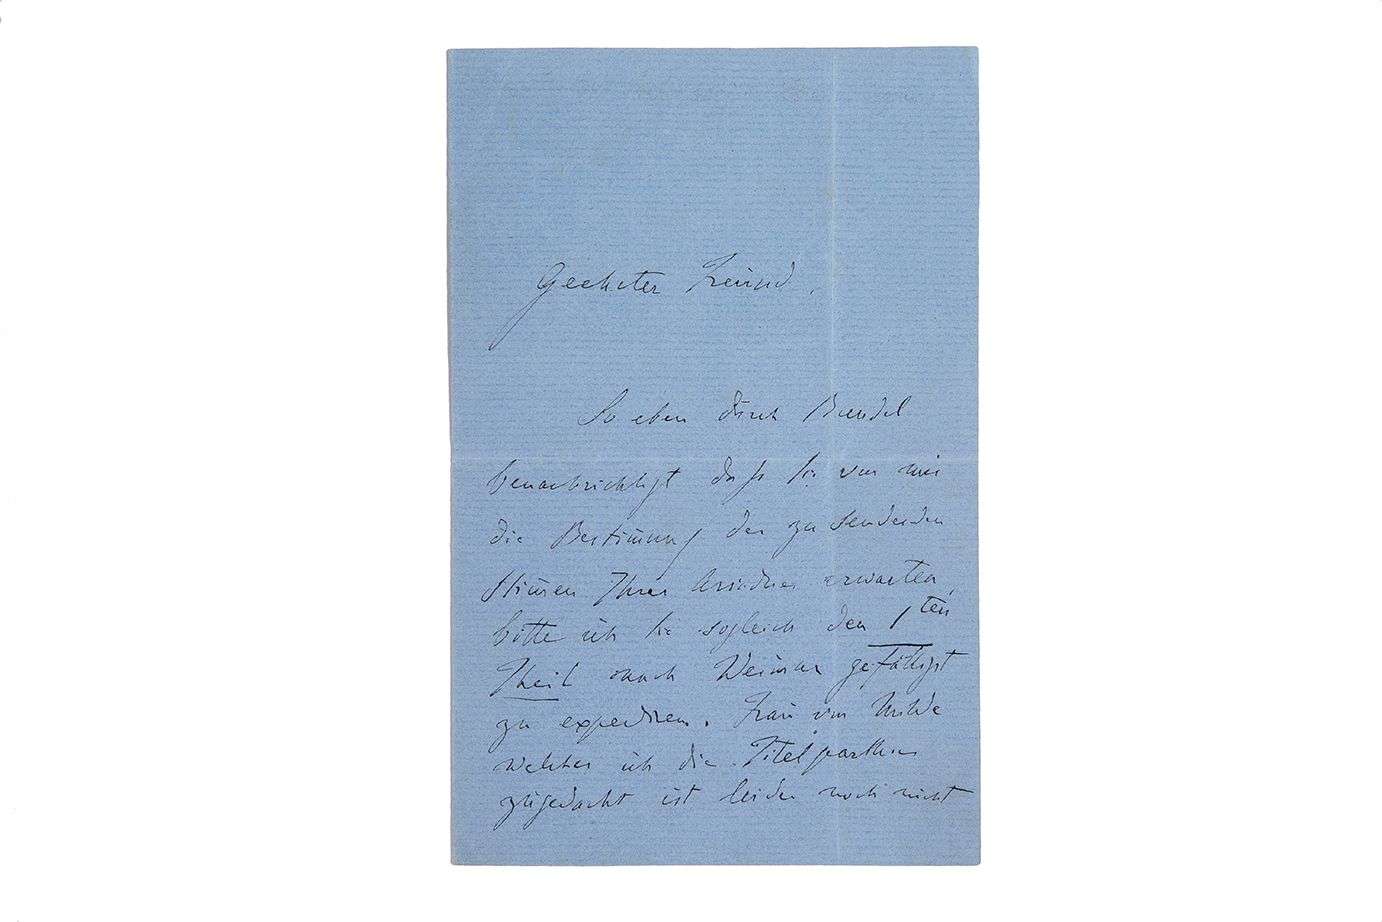 Geehrter Freund,
So eben durch Brendel
benachrichtigt dass Sie von mir
die Bestimung der zu sendenden
Stimen Ihrer erwarten,
bitte ich Sie sogleich den 1ten
Theil nach Weimar gefälligst
zu expediren. Frau von Milde
welcher ich die Titelparthie
zugedacht ist leider noch nicht